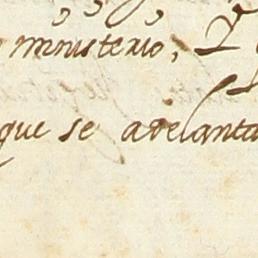 ministerio,
que se adelanta